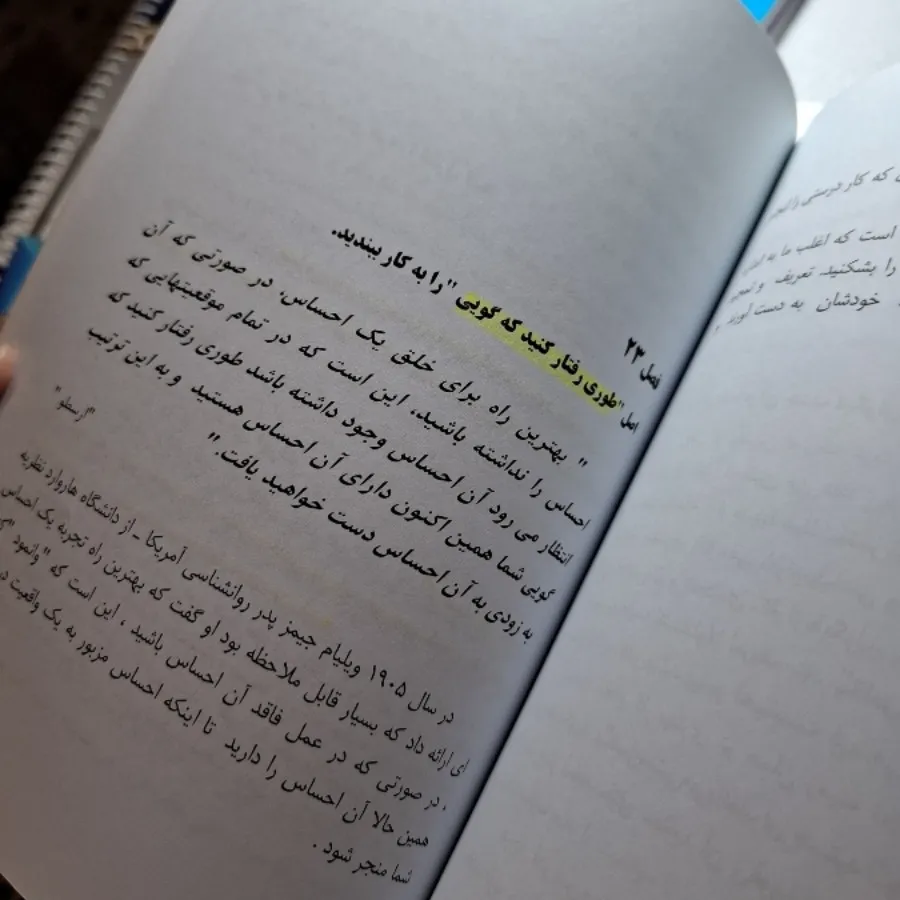 فصل ۲۳
اصل "طوری رفتار کنید که گویی" را به کار ببندید.
" بهترین راه برای خلق یک احساس، در صورتی که آن
احساس را نداشته باشید، این است که در تمام موقعیتهایی که
انتظار می رود آن احساس وجود داشته باشد طوری رفتار کنید که
گویی شما همین اکنون دارای آن احساس هستید و به این ترتیب
به زودی به آن احساس دست خواهید یافت."
"ارسطو"
در سال ۱۹۰۵ ویلیام جیمز پدر روانشناسی آمریکا - از دانشگاه هاروارد نظریه
ای ارائه داد که بسیار قابل ملاحظه بود او گفت که بهترین راه تجربه یک احساس
، در صورتی که در عمل فاقد آن احساس باشید ، این است که "وانمود
همین حالا آن احساس را دارید تا اینکه احساس مزبور به یک واقعیت
شما منجر شود .
که کار درستی را
است که اغلب ما به
را بشکنید. تعریف و
خودشان به دست آورند